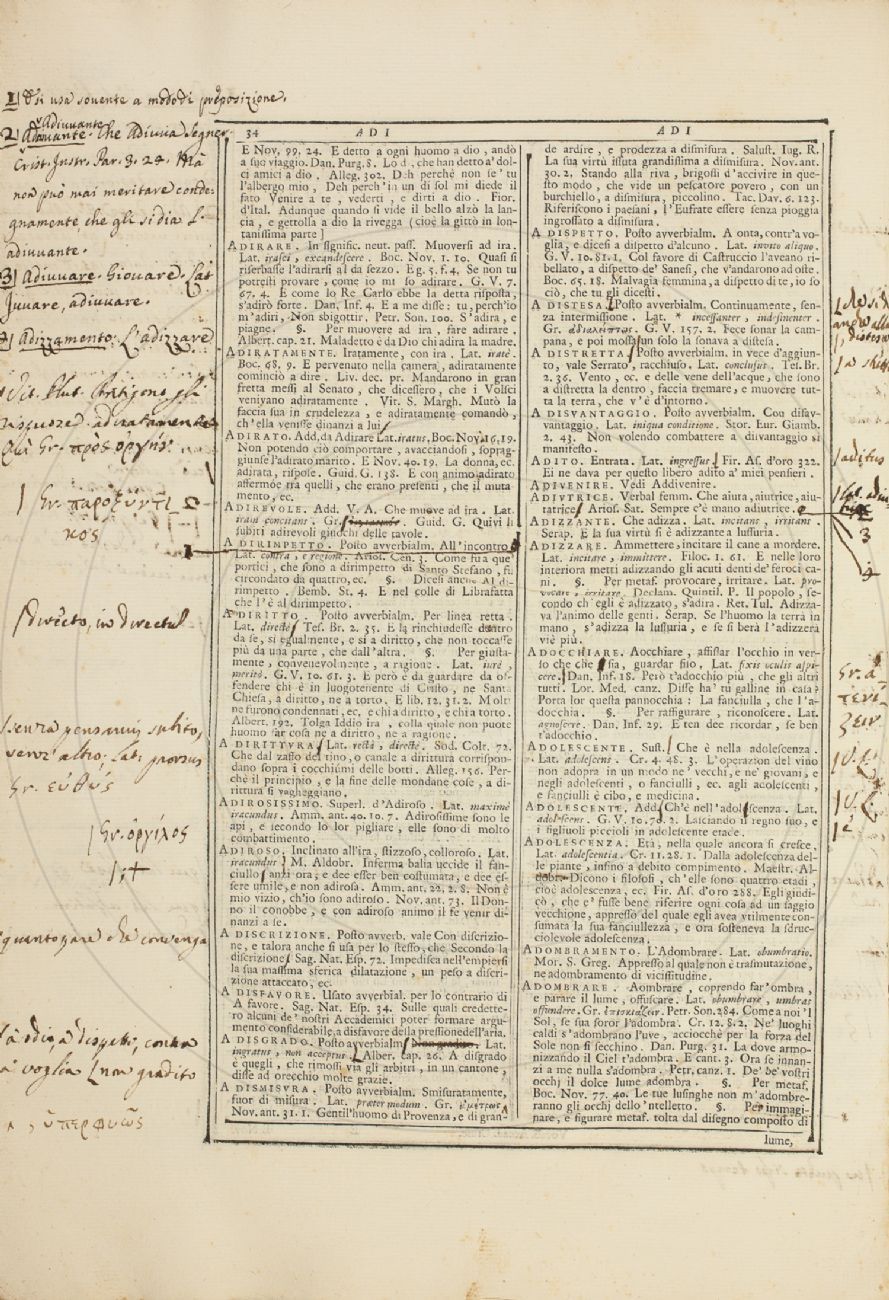 1) Si usa sovente a modo di preposizione.
2) Adiuvante. Che Adiuva Segner.
Adiuvante
Crist. Instr. Par. 3. 24. Ma
non può mai meritare conde-
gnamente, che gli si dia l'
adiuvante.
3) Adiuvare. Giovare. Lat
Juvare, adiuvare.
Adizzamento. L'adizzare
adiratamente
Gr. πρὸς ὀργὴν
Gr. παροξυντι
κός
directo, in directum
senza pensarvi, subito,
senz' altro, Lat. prorsus
Gr. εὐθύς
Gr. ὀργίλος
quanto pare che convenga
a dispetto, contra
voglia non gradito
ὑπερφυῶς
34 ADI
E Nov. 99. 24. E detto a ogni huomo a dio, andò
a suo viaggio. Dan. Purg. 8. Lo dì, che han detto a' dol-
ci amici a dio. Alleg. 302. Deh perché non se' tu
l'albergo mio, Deh perch'in un dì sol mi diede il
fato Venire a te, vederti, e dirti a dio. Fior.
d'Ital. Adunque quando si vide il bello alzò la lan-
cia, e gettolla a dio la rivegga (cioè la gittò in lon-
tanissima parte]
ADIRARE. In signific. neut. pass. Muoversi ad ira.
Lat. irasci, excandescere. Boc. Nov. 1. 10. Quasi si
riserbasse l'adirarsi al da sezzo. Eg. 5. f. 4. Se non tu
potresti provare, come io mi so adirare. G. V. 7.
67. 4. E come lo Re Carlo ebbe la detta risposta,
s'adirò forte. Dan. Inf. 4. E a me disse: tu, perch'io
m'adiri, Non sbigottir. Petr. Son. 100. S'adira, e
piagne. §. Per muovere ad ira, fare adirare.
Albert. cap. 21. Maladetto è da Dio chi adira la madre.
ADIRATAMENTE. Iratamente, con ira. Lat. iratè.
Boc. 68. 9. E pervenuto nella camera, adiratamente
cominciò a dire. Liv. dec. pr. Mandarono in gran
fretta messi al Senato, che dicessero, che i Volsci
veniyano adiratamente. Vit. S. Margh. Mutò la
faccia sua in crudelezza, e adiratamente comandò,
ch'ella venisse dinanzi a lui
ADIRATO. Add. da Adirare Lat. iratus. Boc. Nov. 16. 19.
Non potendo ciò comportare, avacciandosi, soprag-
giunse l'adirato marito. E Nov. 40. 19. La donna, ec.
adirata, rispose. Guid. G. 138. E con animo adirato
affermòe tra quelli, che erano presenti, che il muta-
mento, ec.
ADIREVOLE. Add. V. A. Che muove ad ira. Lat.
iram concitans. Gr. Guid. G. Quivi li
subiti adirevoli giuochi delle tavole.
A DIRINPETTO. Posto avverbialm. All'incontro
Lat. contra, e regione. Ariol. Cen. 3. Come fu a que'
portici, che sono a dirimpetto di Santo Stefano, fu
circondato da quattro, ec. §. Dicesi anche Al di-
rimpetto. Bemb. St. 4. E nel colle di Librafatta
che l'è al dirimpetto.
A DIRITTO. Posto avverbialm. Per linea retta.
Lat. directè Tes. Br. 2. 35. E la rinchiudesse dentro
da se, sì egualmente, e sì a diritto, che non toccasse
più da una parte, che dall'altra. §. Per giusta-
mente, convenevolmente, a ragione. Lat. iurè,
meritò. G. V. 10. 61. 3. E però è da guardare da of-
fendere chi è in luogotenente di Cristo, ne Santa
Chiesa, a diritto, ne a torto. E lib. 12. 31. 2. Molti
ne furono condennati, ec. e chi a diritto, e chi a torto.
Albert. 192. Tolga Iddio ira, colla quale non puote
huomo far cosa ne a diritto, ne a ragione.
A DIRITTVRA Lat. rectà, directè. Sod. Colt. 72.
Che dal zaffo del tino, o canale a dirittura corrispon-
dano sopra i cocchiumi delle botti. Alleg. 156. Per-
chè il principio, e la fine delle mondane cose, a di-
rittura si vagheggiano.
ADIROSISSIMO. Superl. d'Adiroso. Lat. maximè
iracundus. Amm. ant. 40. 10. 7. Adirosissime sono le
api, e secondo lo lor pigliare, elle sono di molto
combattimento.
ADIROSO. Inclinato all'ira, stizzoso, colloroso. Lat.
iracundus M. Aldobr. Inferma balia uccide il fan-
ciullo anzi ora; e dee esser ben costumata, e dee es-
sere umile, e non adirosa. Amm. ant. 22. 2. 8. Non è
mio vizio, ch'io sono adiroso. Nov. ant. 73. Il Don-
no il conobbe, e con adiroso animo il fe venir di-
nanzi a se.
A DISCRIZIONE. Posto avverb. vale Con discrizio-
ne, e talora anche si usa per lo stesso, che Secondo la
discrizione Sag. Nat. Esp. 72. Impedisca nell'empiersi
la sua massima sferica dilatazione, un peso a discri-
zione attaccato, ec.
A DISFAVORE. Usato avverbial. per lo contrario di
A favore. Sag. Nat. Esp. 34. Sulle quali credette-
ro alcuni de' nostri Accademici poter formare argu-
mento considerabile, a disfavore della pressione dell'aria.
A DISGRADO. Posto avverbialm Lat.
ingratus, non acceptus. Alber. cap. 26. A disgrado
è quegli, che rimossi via gli arbitri, in un cantone,
disse ad orecchio molte grazie.
A DISMISVRA. Posto avverbialm. Smisuratamente,
fuor di misura. Lat. præter modum. Gr. ἀμέτρως
Nov. ant. 31. 1. Gentil'huomo di Provenza, e di gran-
ADI
de ardire, e prodezza a dismisura. Salust. Iug. R.
La sua virtù issuta grandissima a dismisura. Nov. ant.
30. 2. Stando alla riva, brigossi d'accivire in que-
sto modo, che vide un pescatore povero, con un
burchiello, a dismisura, piccolino. Tac. Dav. 6. 123.
Riferiscono i paesani, l'Eufrate essere senza pioggia
ingrossato a dismisura.
A DISPETTO. Posto avverbialm. A onta, contr'a vo-
glia, e dicesi a dispetto d'alcuno. Lat. invito aliquo.
G. V. 10. 81. 1. Col favore di Castruccio l'aveano ri-
bellato, a dispetto de' Sanesi, che v'andarono ad oste.
Boc. 65. 18. Malvagia femmina, a dispetto di te, io so
ciò, che tu gli dicesti.
A DISTESA Posto avverbialm. Continuamente, sen-
za intermissione. Lat. * incessanter, indesinenter.
Gr. ἀδιαλείπτως. G. V. 157. 2. Fece sonar la cam-
pana, e poi mossa un solo la sonava a distesa.
A DISTRETTA Posto avverbialm. in vece d'aggiun-
to, vale Serrato, racchiuso. Lat. conclusus. Tes. Br.
2. 36. Vento, ec. e delle vene dell'acque, che sono
a distretta là dentro, faccia tremare, e muovere tut-
ta la terra, che v'è d'intorno.
A DISVANTAGGIO. Posto avverbialm. Con disav-
vantaggio. Lat. iniqua conditione. Stor. Eur. Giamb.
2. 43. Non volendo combattere a disvantaggio sì
manifesto.
ADITO. Entrata. Lat. ingressus Fir. As. d'oro 322.
Ei ne dava per questo libero adito a' miei pensieri.
ADIVENIRE. Vedi Addivenire.
ADIVTRICE. Verbal femm. Che aiuta, aiutrice, aiu-
tatrice Arios. Sat. Sempre c'è mano adiutrice.
ADIZZANTE. Che adizza. Lat. incitans, irritans.
Serap. E la sua virtù sì è adizzante a lussuria.
ADIZZARE. Ammettere, incitare il cane a mordere.
Lat. incitare, immittere. Filoc. 1. 61. E nelle loro
interiora metti adizzando gli acuti denti de' feroci ca-
ni. §. Per metaf. provocare, irritare. Lat. pro-
vocare, irritare. Declam. Quintil. P. Il popolo, se-
condo ch'egli è adizzato, s'adira. Ret. Tul. Adizza-
va l'animo delle genti. Serap. Se l'huomo la terrà in
mano, s'adizza la lussuria, e se si berà l'adizzerà
vie più.
ADOCCHIARE. Aocchiare, affissar l'occhio in ver-
so che che sia, guardar fiso, Lat. fixis oculis aspi-
cere. Dan. Inf. 18. Però t'adocchio più, che gli altri
tutti. Lor. Med. canz. Disse ha' tu galline in casa?
Porta lor questa pannocchia: La fanciulla, che l'a-
docchia. §. Per raffigurare, riconoscere. Lat.
agnoscere. Dan. Inf. 29. E ten dee ricordar, se ben
t'adocchio.
ADOLESCENTE. Sust. Che è nella adolescenza.
Lat. adolescens. Cr. 4. 48. 3. L'operazion del vino
non adopra in un modo ne' vecchi, e ne' giovani, e
negli adolescenti, o fanciulli, ec. agli adolescenti,
e fanciulli è cibo, e medicina.
ADOLESCENTE. Add. Ch'è nell'adolescenza. Lat.
adolescens. G. V. 10. 70. 2. Lasciando il regno suo, e
i figliuoli piccioli in adolescente etade.
ADOLESCENZA. Età, nella quale ancora si cresce.
Lat. adolescentia. Cr. 11. 28. 1. Dalla adolescenza del-
le piante, insino a debito compimento. Maestr. Al-
dobr. Dicono i filosofi, ch'elle sono quattro etadi,
cioè adolescenza, ec. Fir. As. d'oro 288. Egli giudi-
cò, che e' fusse bene riferire ogni cosa ad un saggio
vecchione, appresso del quale egli avea vtilmente con-
sumata la sua fanciullezza, e ora sosteneva la sdruc-
ciolevole adolescenza.
ADOMBRAMENTO. L'Adombrare. Lat. obumbratio.
Mor. S. Greg. Appresso al quale non è trasmutazione,
ne adombramento di vicissitudine.
ADOMBRARE. Aombrare, coprendo far'ombra,
e parare il lume, offuscare. Lat. obumbrare, umbras
offundere. Gr. ἐπισκιάζειν. Petr. Son. 284. Come a noi 'l
Sol, se sua soror l'adombra. Cr. 12. 8. 2. Ne' luoghi
caldi s'adombrano l'uve, acciocché per la forza del
Sole non si secchino. Dan. Purg. 31. La dove armo-
nizzando il Ciel t'adombra. E cant. 3. Ora se innan-
zi a me nulla s'adombra. Petr. canz. 1. De' be' vostri
occhj il dolce lume adombra. §. Per metaf.
Boc. Nov. 77. 40. Le tue lusinghe non m'adombre-
ranno gli occhj dello 'ntelletto. §. Per immagi-
nare, e figurare metaf. tolta dal disegno composto di
lume,
aditus
3
4
Gr. ἀ
τενί
ζειν